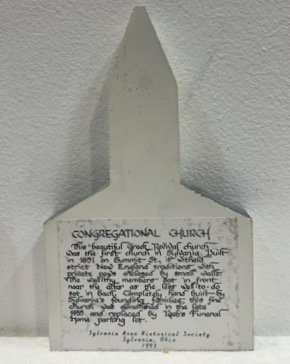 CONGREGATIONAL CHURCH
This beautiful Greek Revival church
was the first church in Sylvania. Built
in 1851 on Summit St., it
strict New England traditions, with
private pews enclosed by small walls.
The wealthy members sat in front
near the altar as the less well-to-do
sat in back. Completely hand built by
Sylvania's founding families, this fine
church was demolished in the late
and replaced by Reeb's Funeral
Home parking lot.
Sylvania Area Historical Society
Sylvania, Ohio
1993